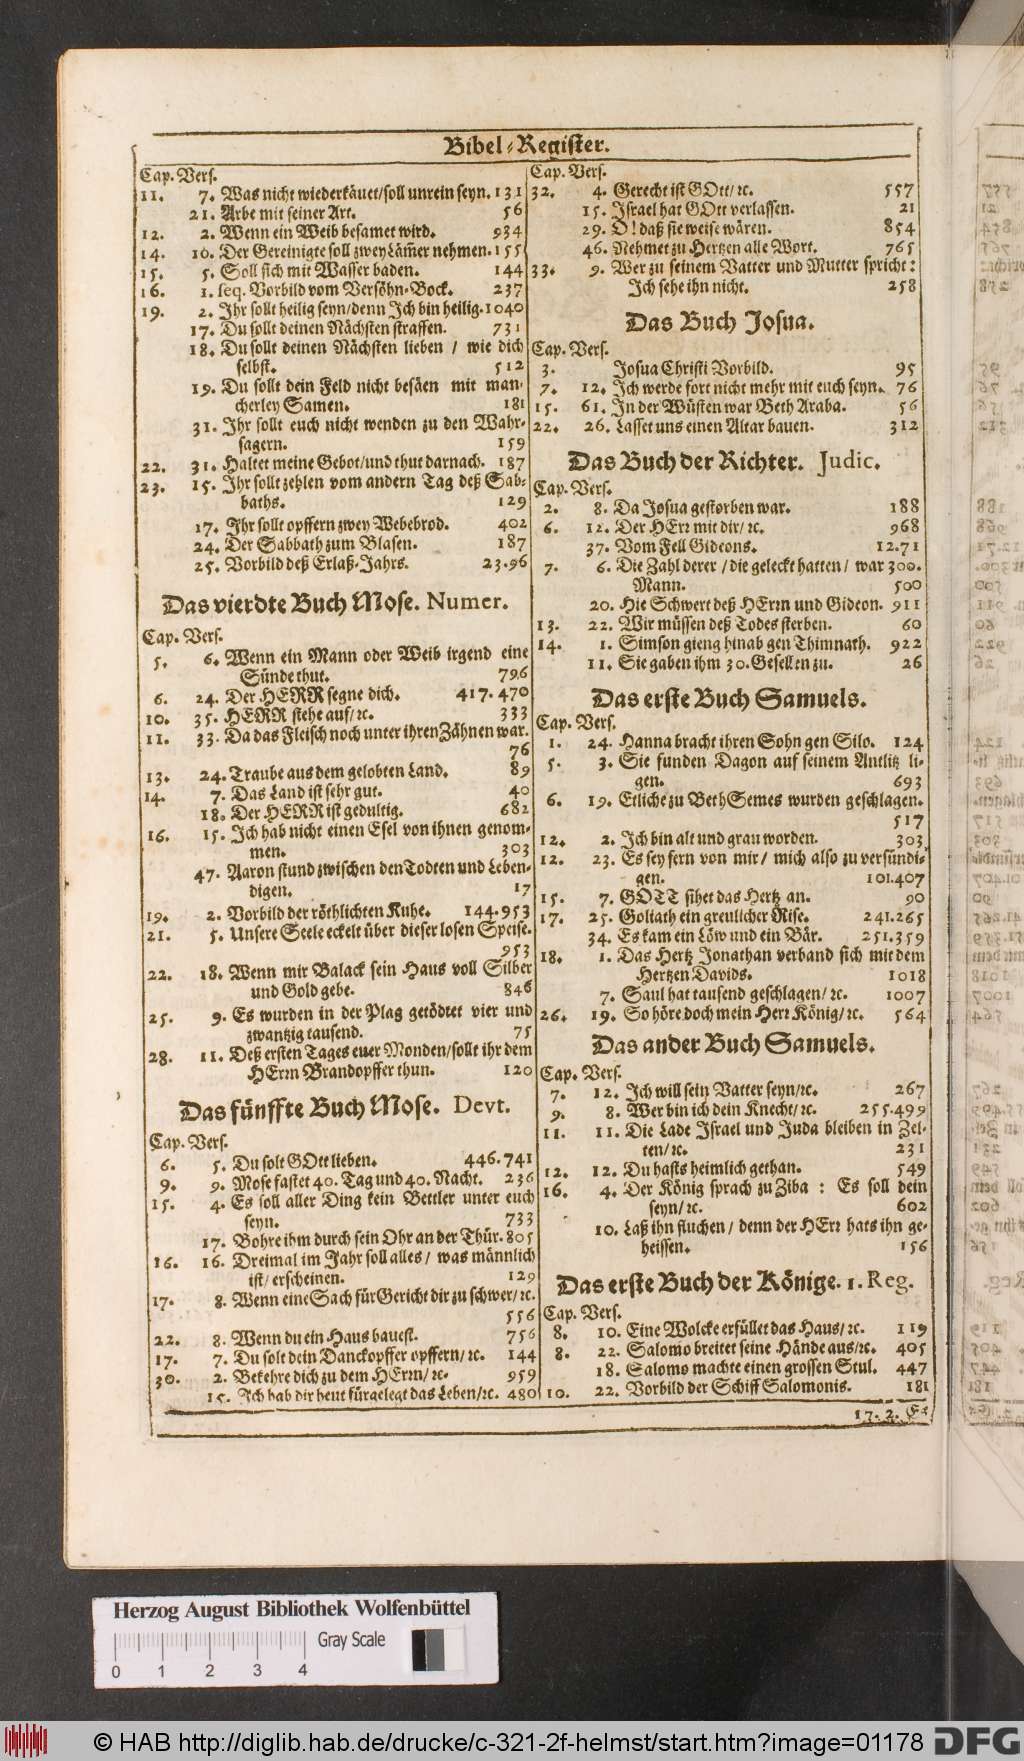 Bibel-Register.
Cap. Vers.
11. 7. Was nicht wiederkäuet/soll unrein seyn. 131
21. Arbe mit seiner Art. 56
12. 2. Wenn ein Weib besamet wird. 934
14. 10. Der Gereinigte soll zwey Läm̃er nehmen. 155
15. 5. Soll sich mit Wasser baden. 144
16. 1. seq. Vorbild vom Versöhn-Bock. 237
19. 2. Ihr sollt heilig seyn/denn Ich bin heilig. 1040
17. Du sollt deinen Nächsten straffen. 731
18. Du sollt deinen Nächsten lieben / wie dich
selbst. 512
19. Du sollt dein Feld nicht besäen mit man-
cherley Samen. 181
31. Ihr sollt euch nicht wenden zu den Wahr-
sagern. 159
22. 31. Haltet meine Gebot/und thut darnach. 187
23. 15. Ihr sollt zehlen vom andern Tag deß Sab-
baths. 129
17. Ihr sollt opffern zwey Webebrod. 402
24. Der Sabbath zum Blasen. 187
25. Vorbild deß Erlaß-Jahrs. 23.96
Das vierdte Buch Mose. Numer.
Cap. Vers.
5. 6. Wenn ein Mann oder Weib irgend eine
Sünde thut. 796
6. 24. Der HERR segne dich. 417.470
10. 35. HERR stehe auf/ꝛc. 333
11. 33. Da das Fleisch noch unter ihren Zähnen war.
76
13. 24. Traube aus dem gelobten Land. 89
14. 7. Das Land ist sehr gut. 40
18. Der HERR ist gedultig. 682
16. 15. Ich hab nicht einen Esel von ihnen genom-
men. 303
47. Aaron stund zwischen den Todten und Leben-
digen. 17
19. 2. Vorbild der röthlichten Kuhe. 144.953
21. 5. Unsere Seele eckelt über dieser losen Speise.
953
22. 18. Wenn mir Balack sein Haus voll Silber
und Gold gebe. 846
25. 9. Es wurden in der Plag getödtet vier und
zwantzig tausend. 75
28. 11. Deß ersten Tages euer Monden/sollt ihr dem
HErrn Brandopffer thun. 120
Das fünffte Buch Mose. Devt.
Cap. Vers.
6. 5. Du solt GOtt lieben. 446.741
9. 9. Mose fastet 40. Tag und 40. Nacht. 236
15. 4. Es soll aller Ding kein Bettler unter euch
seyn. 733
17. Bohre ihm durch sein Ohr an der Thür. 805
16. 16. Dreimal im Jahr soll alles / was männlich
ist/ erscheinen. 129
17. 8. Wenn eine Sach für Gericht dir zu schwer/ꝛc.
556
22. 8. Wenn du ein Haus bauest. 756
17. 7. Du solt dein Danckopffer opffern/ꝛc. 144
30. 2. Bekehre dich zu dem HErrn/ꝛc. 959
15. Ich hab dir heut fürgelegt das Leben/ꝛc. 480
Cap. Vers.
32. 4. Gerecht ist GOtt/ꝛc. 557
15. Israel hat GOtt verlassen. 21
29. O! daß sie weise wären. 854
46. Nehmet zu Hertzen alle Wort. 765
33. 9. Wer zu seinem Vatter und Mutter spricht:
Ich sehe ihn nicht. 258
Das Buch Josua.
Cap. Vers.
3. Josua Christi Vorbild. 95
7. 12. Ich werde fort nicht mehr mit euch seyn. 76
15. 61. In der Wüsten war Beth Araba. 56
22. 26. Lasset uns einen Altar bauen. 312
Das Buch der Richter. Judic.
Cap. Vers.
2. 8. Da Josua gestorben war. 188
6. 12. Der HErr mit dir/ꝛc. 968
37. Vom Fell Gideons. 12.71
7. 6. Die Zahl derer / die geleckt hatten / war 300.
Mann. 500
20. Hie Schwert deß HErrn und Gideon. 911
13. 22. Wir müssen deß Todes sterben. 60
14. 1. Simson gieng hinab gen Thimnath. 922
11. Sie gaben ihm 30. Gesellen zu. 26
Das erste Buch Samuels.
Cap. Vers.
1. 24. Hanna bracht ihren Sohn gen Silo. 124
5. 3. Sie funden Dagon auf seinem Antlitz li-
gen. 693
6. 19. Etliche zu BethSemes wurden geschlagen.
517
12. 2. Ich bin alt und grau worden. 303
12. 23. Es sey fern von mir / mich also zu versündi-
gen. 101.407
15. 7. GOTT sihet das Hertz an. 90
17. 25. Goliath ein greulicher Rise. 241.265
34. Es kam ein Löw und ein Bär. 251.359
18. 1. Das Hertz Jonathan verband sich mit dem
Hertzen Davids. 1018
7. Saul hat tausend geschlagen/ꝛc. 1007
26. 19. So höre doch mein Herr König/ꝛc. 564
Das ander Buch Samuels.
Cap. Vers.
7. 12. Ich will sein Vatter seyn/ꝛc. 267
9. 8. Wer bin ich dein Knecht/ꝛc. 255.499
11. 11. Die Lade Israel und Juda bleiben in Zel-
ten/ꝛc. 231
12. 12. Du hasts heimlich gethan. 549
16. 4. Der König sprach zu Ziba : Es soll dein
seyn/ꝛc. 602
10. Laß ihn fluchen / denn der HErr hats ihn ge-
heissen. 156
Das erste Buch der Könige. 1. Reg.
Cap. Vers.
8. 10. Eine Wolcke erfüllet das Haus/ꝛc. 119
8. 22. Salomo breitet seine Hände aus/ꝛc. 405
18. Salomo machte einen grossen Stul. 447
10. 22. Vorbild der Schiff Salomonis. 181
17. 2. Er
Herzog August Bibliothek Wolfenbüttel
Gray Scale
0 1 2 3 4
© HAB http://diglib.hab.de/drucke/c-321-2f-helmst/start.htm?image=01178
DFG